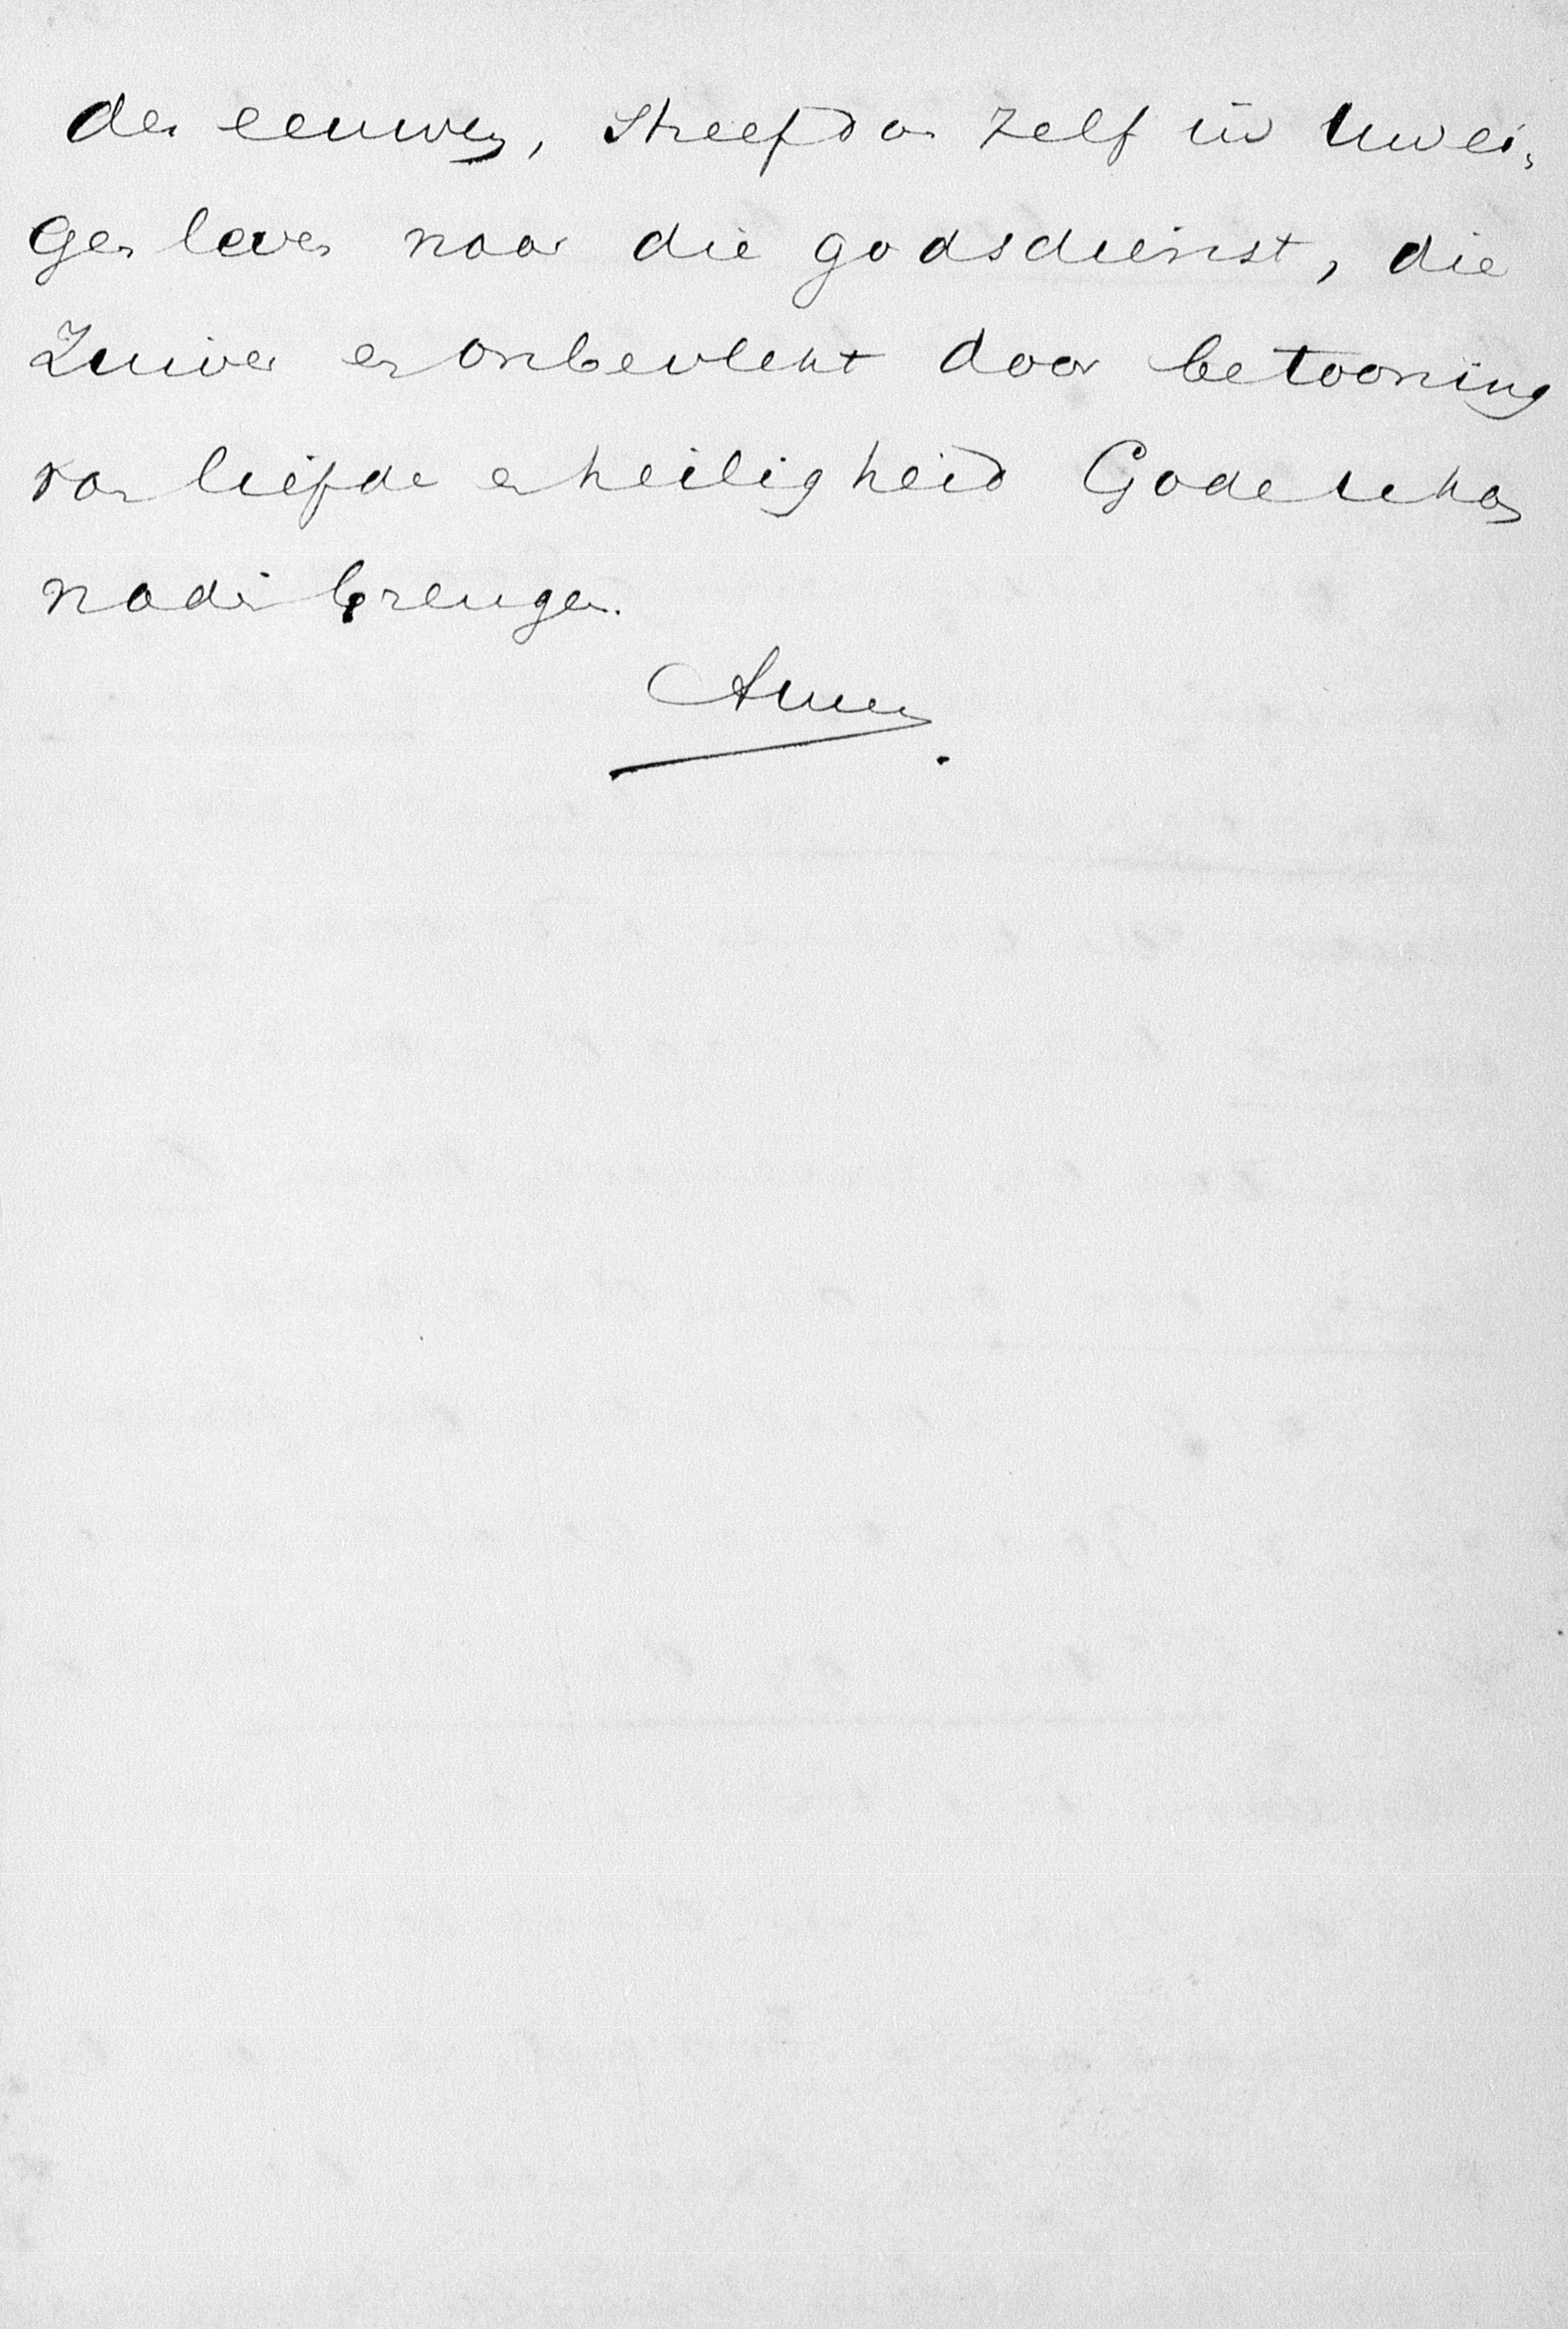 der eeuwen, streef dan zelf in Uw ei-
gen leven naar die godsdienst, die
Zuiver en onbevlekt door betooning
van liefde en heiligheid Gode u kan
nader brengen.
Amen.